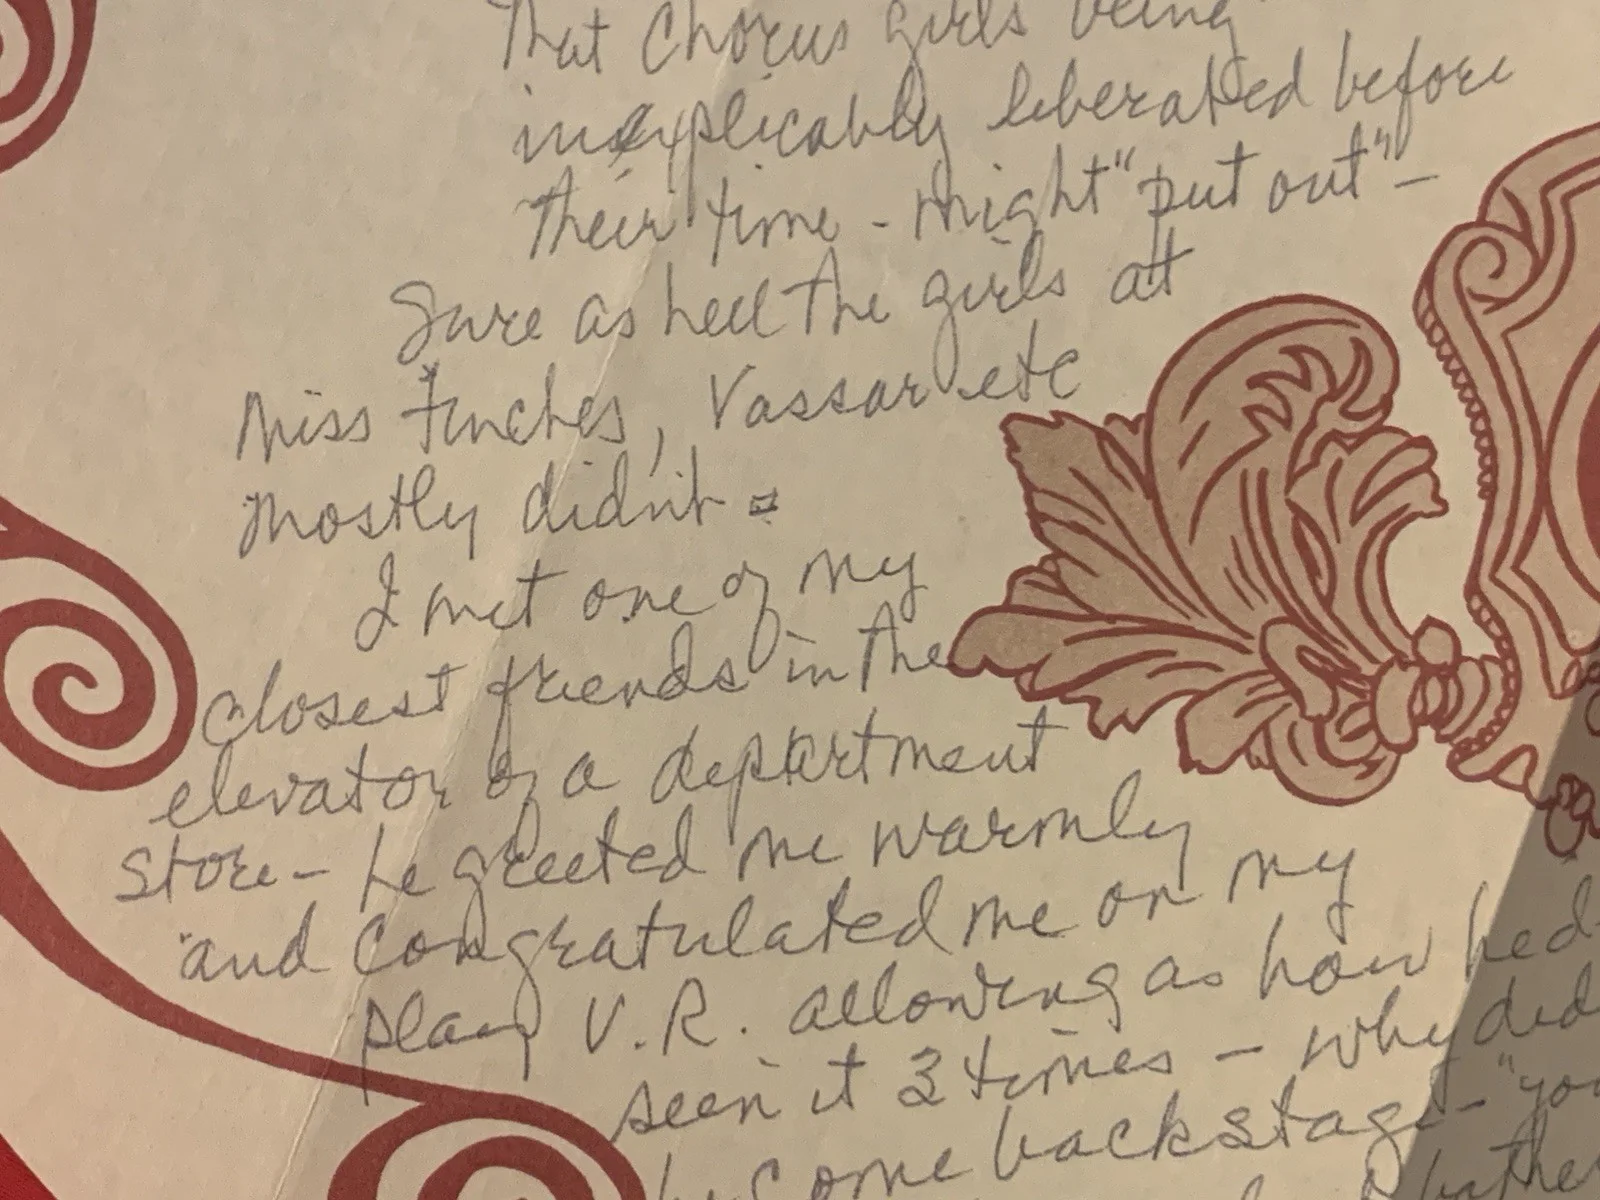 that chorus girls being
inexplicably liberated before
their time - might "put out" -
Sure as hell the girls at
Miss Finches, Vassar etc
mostly didn't.
I met one of my
closest friends in the
elevator of a department
store - he greeted me warmly
and congratulated me on my
play V.R. allowing as how hed
seen it 3 times - why did
he come backstage - "you